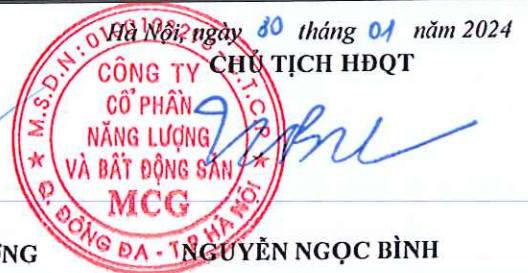 Hà Nội, ngày 30 tháng 01 năm 2024
CHỦ TỊCH HĐQT
CÔNG TY
CỔ PHẦN
NĂNG LƯỢNG
VÀ BẤT ĐỘNG SẢN
MCG
M.S.D.N:
C.T.C.P
Q. ĐỐNG ĐA - T.P HÀ NỘI
NGUYỄN NGỌC BÌNH